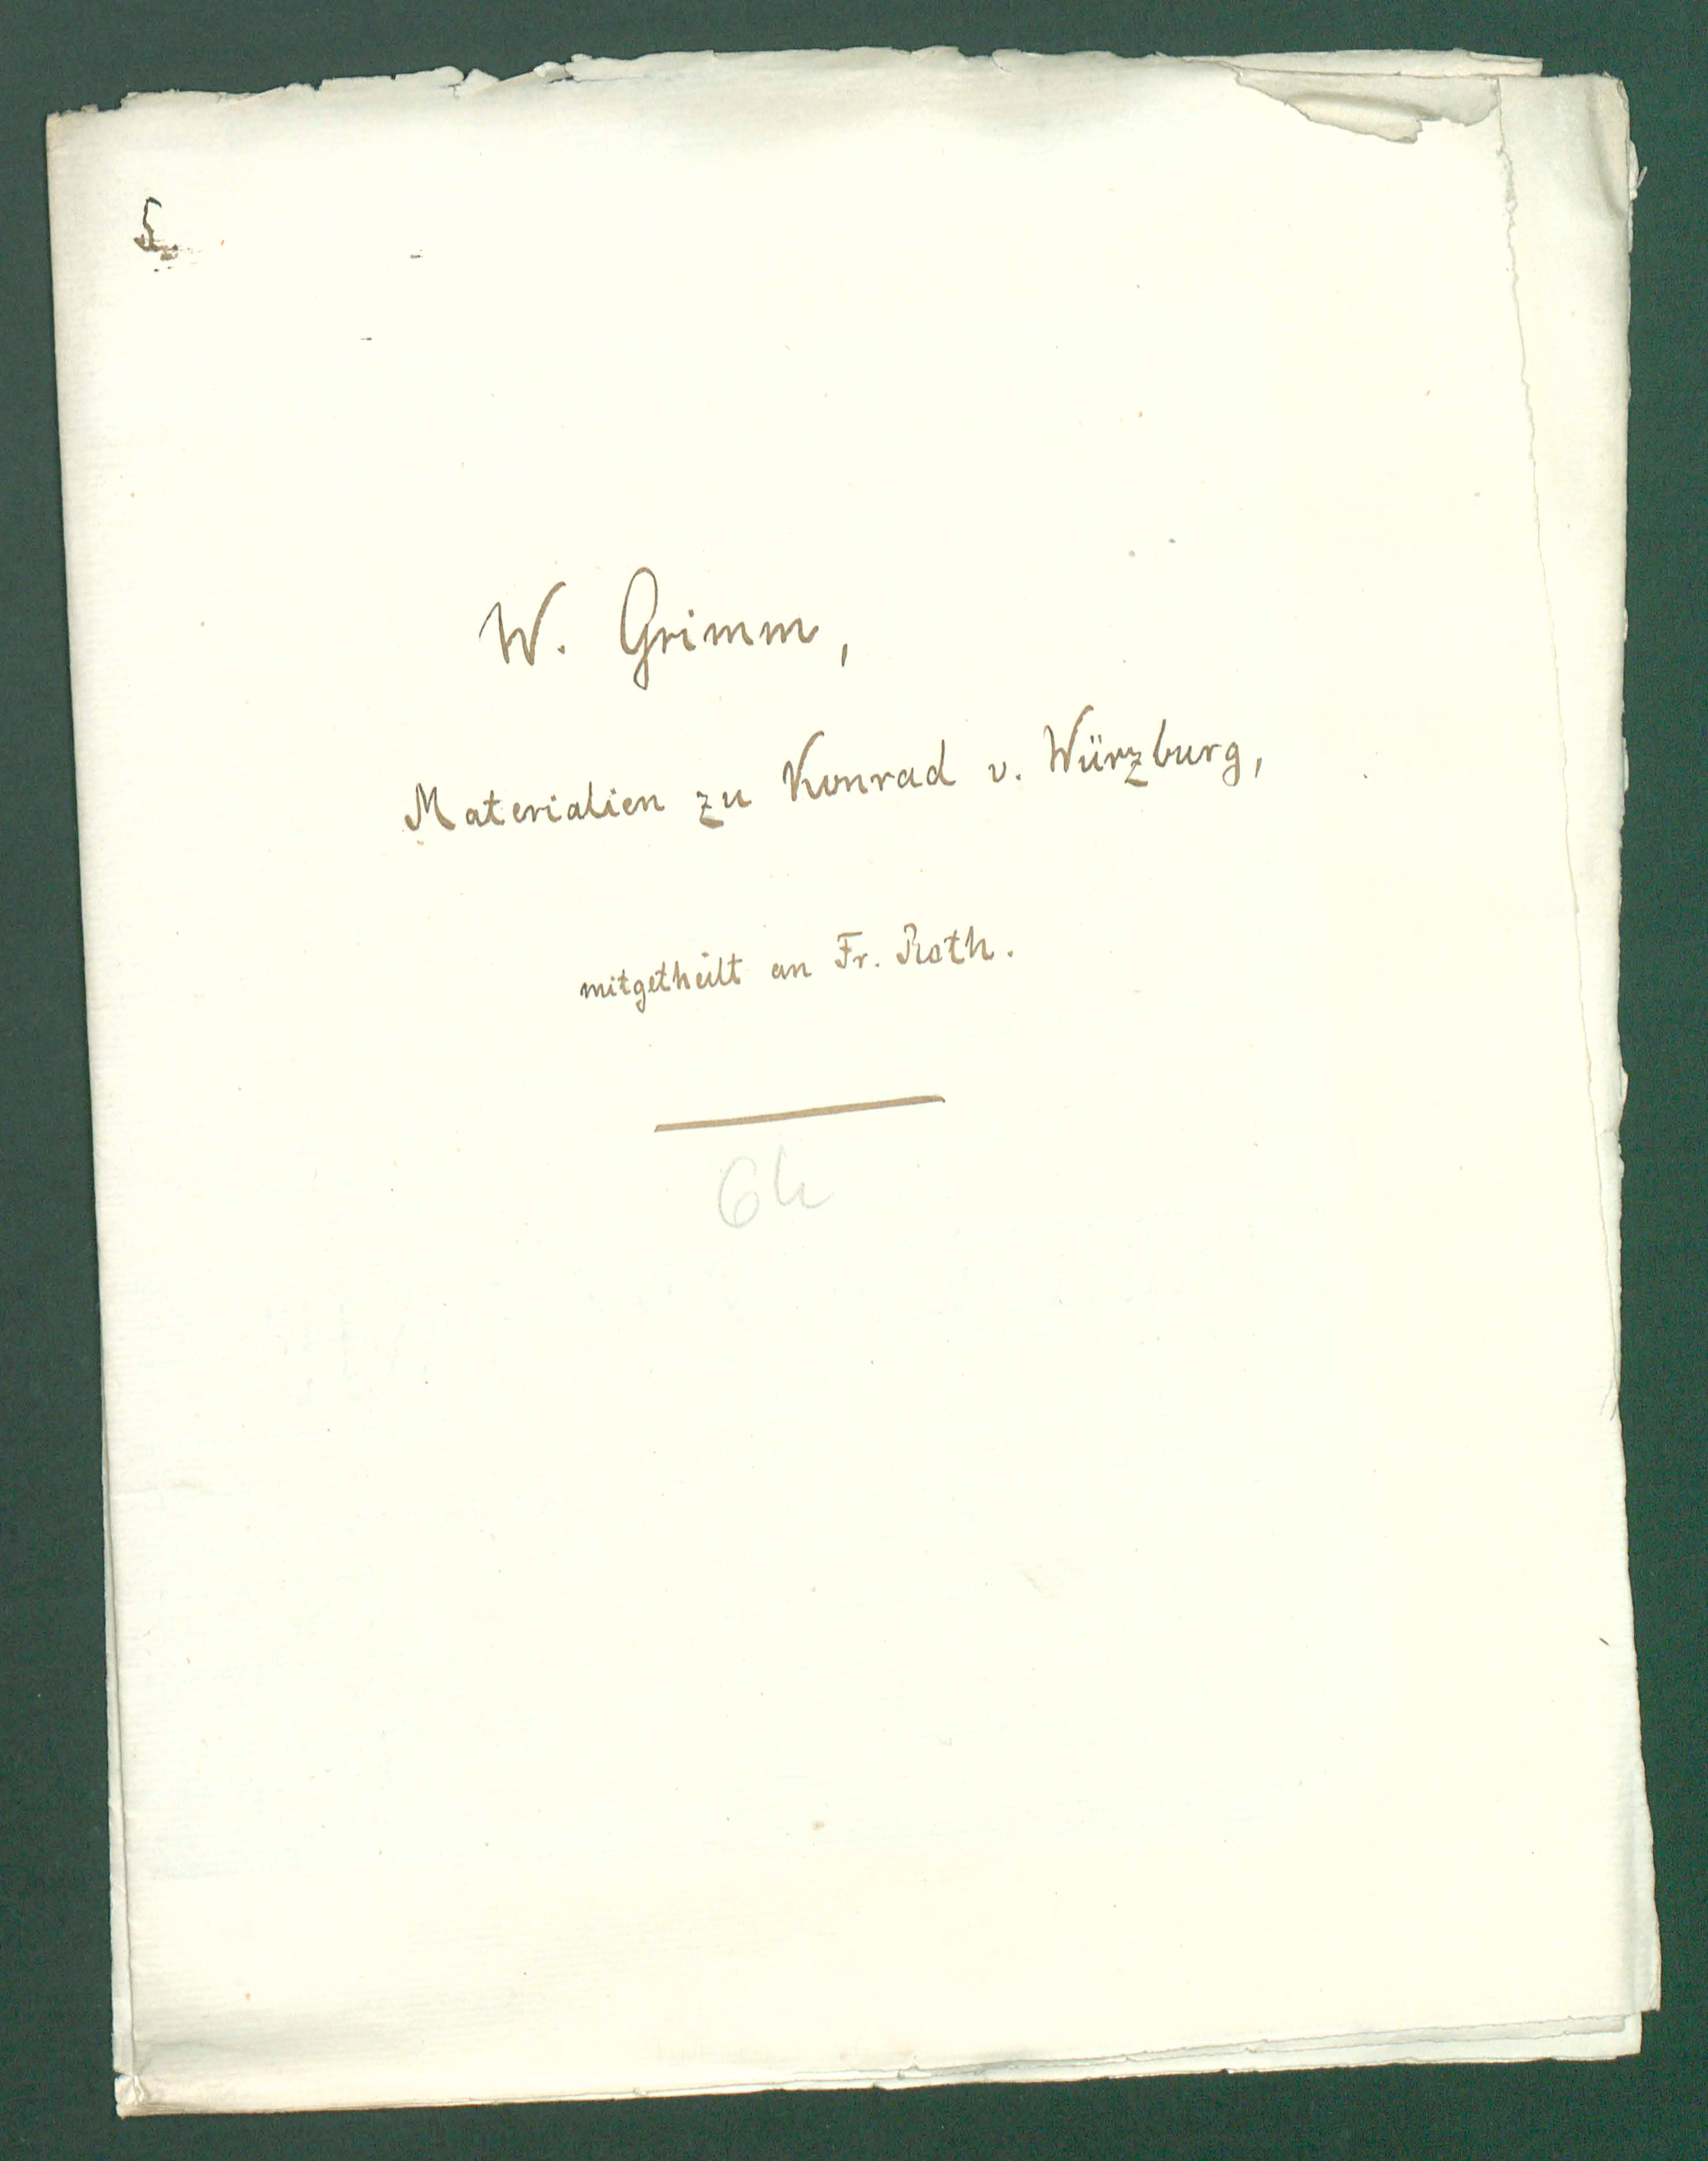 5
W. Grimm,
Materialien zu Konrad v. Würzburg,
mitgetheilt an Fr. Roth.
6h